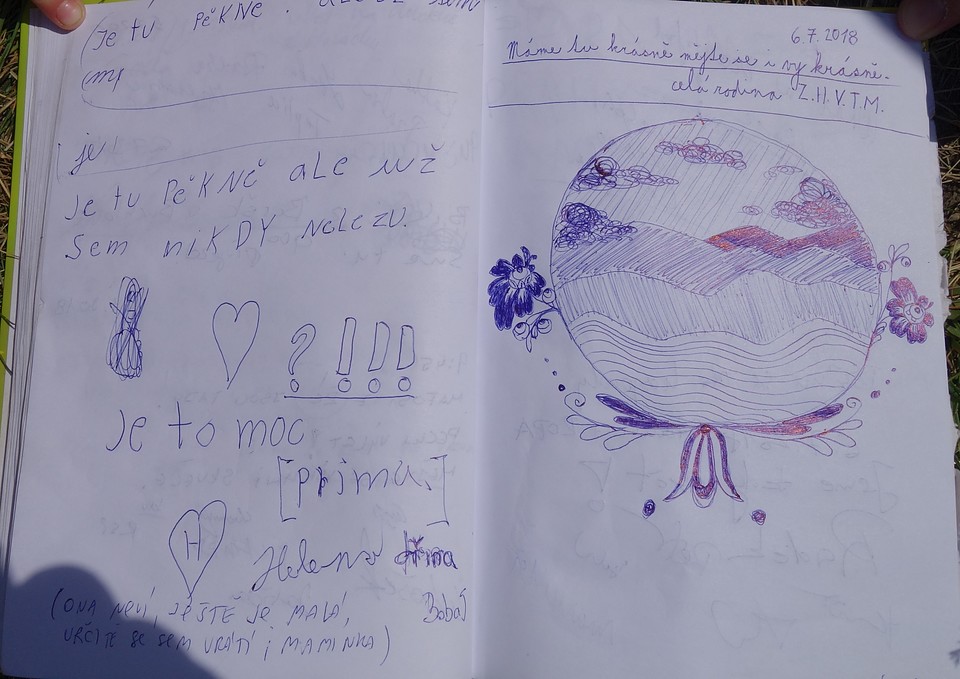 (Je tú PěKNé. ale už sem
(my
je!
Je tu PěKNě ale už
Sem niKDY Nelezu.
? ! ! !
Je to moc
[Prima.]
H
Helena
(ONA NEVÍ JEŠTĚ JE MALÁ,
URČITĚ SE SEM VRÁTÍ i MAMINKA)
6.7.2018
Máme tu krásně mějte se i vy krásně.
celá rodina Z.H.V.T.M.